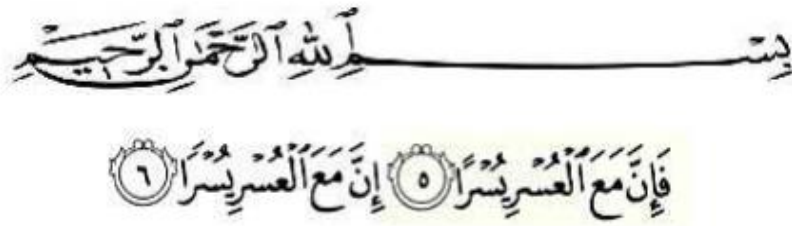 بِسْمِ اللهِ الرَّحْمٰنِ الرَّحِيْمِ
فَإِنَّ مَعَ ٱلْعُسْرِ يُسْرًا ٥ إِنَّ مَعَ ٱلْعُسْرِ يُسْرًا ٦